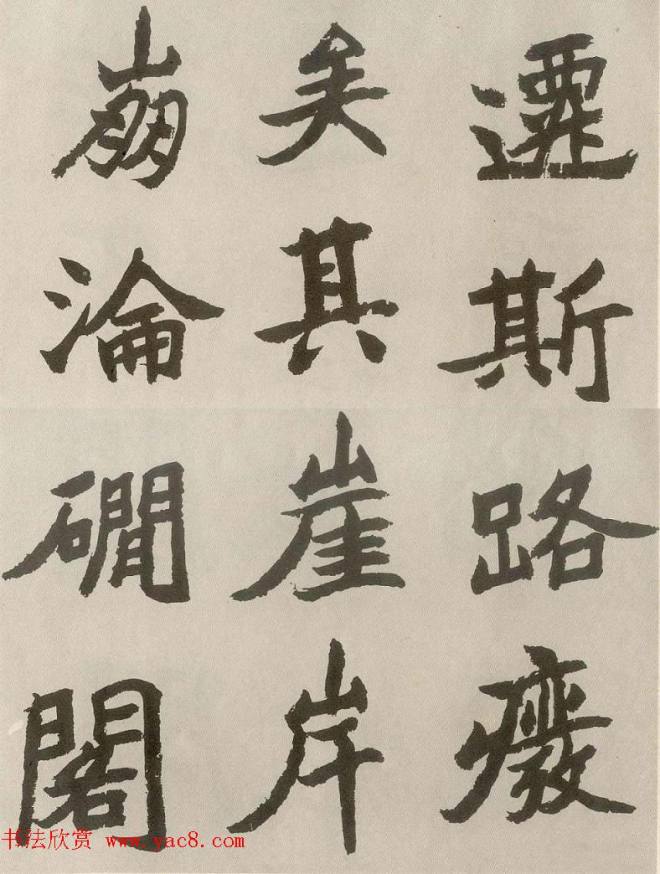 遷斯路癈
矣其崖岸
崩淪磵閣
书法欣赏 www.yac8.com